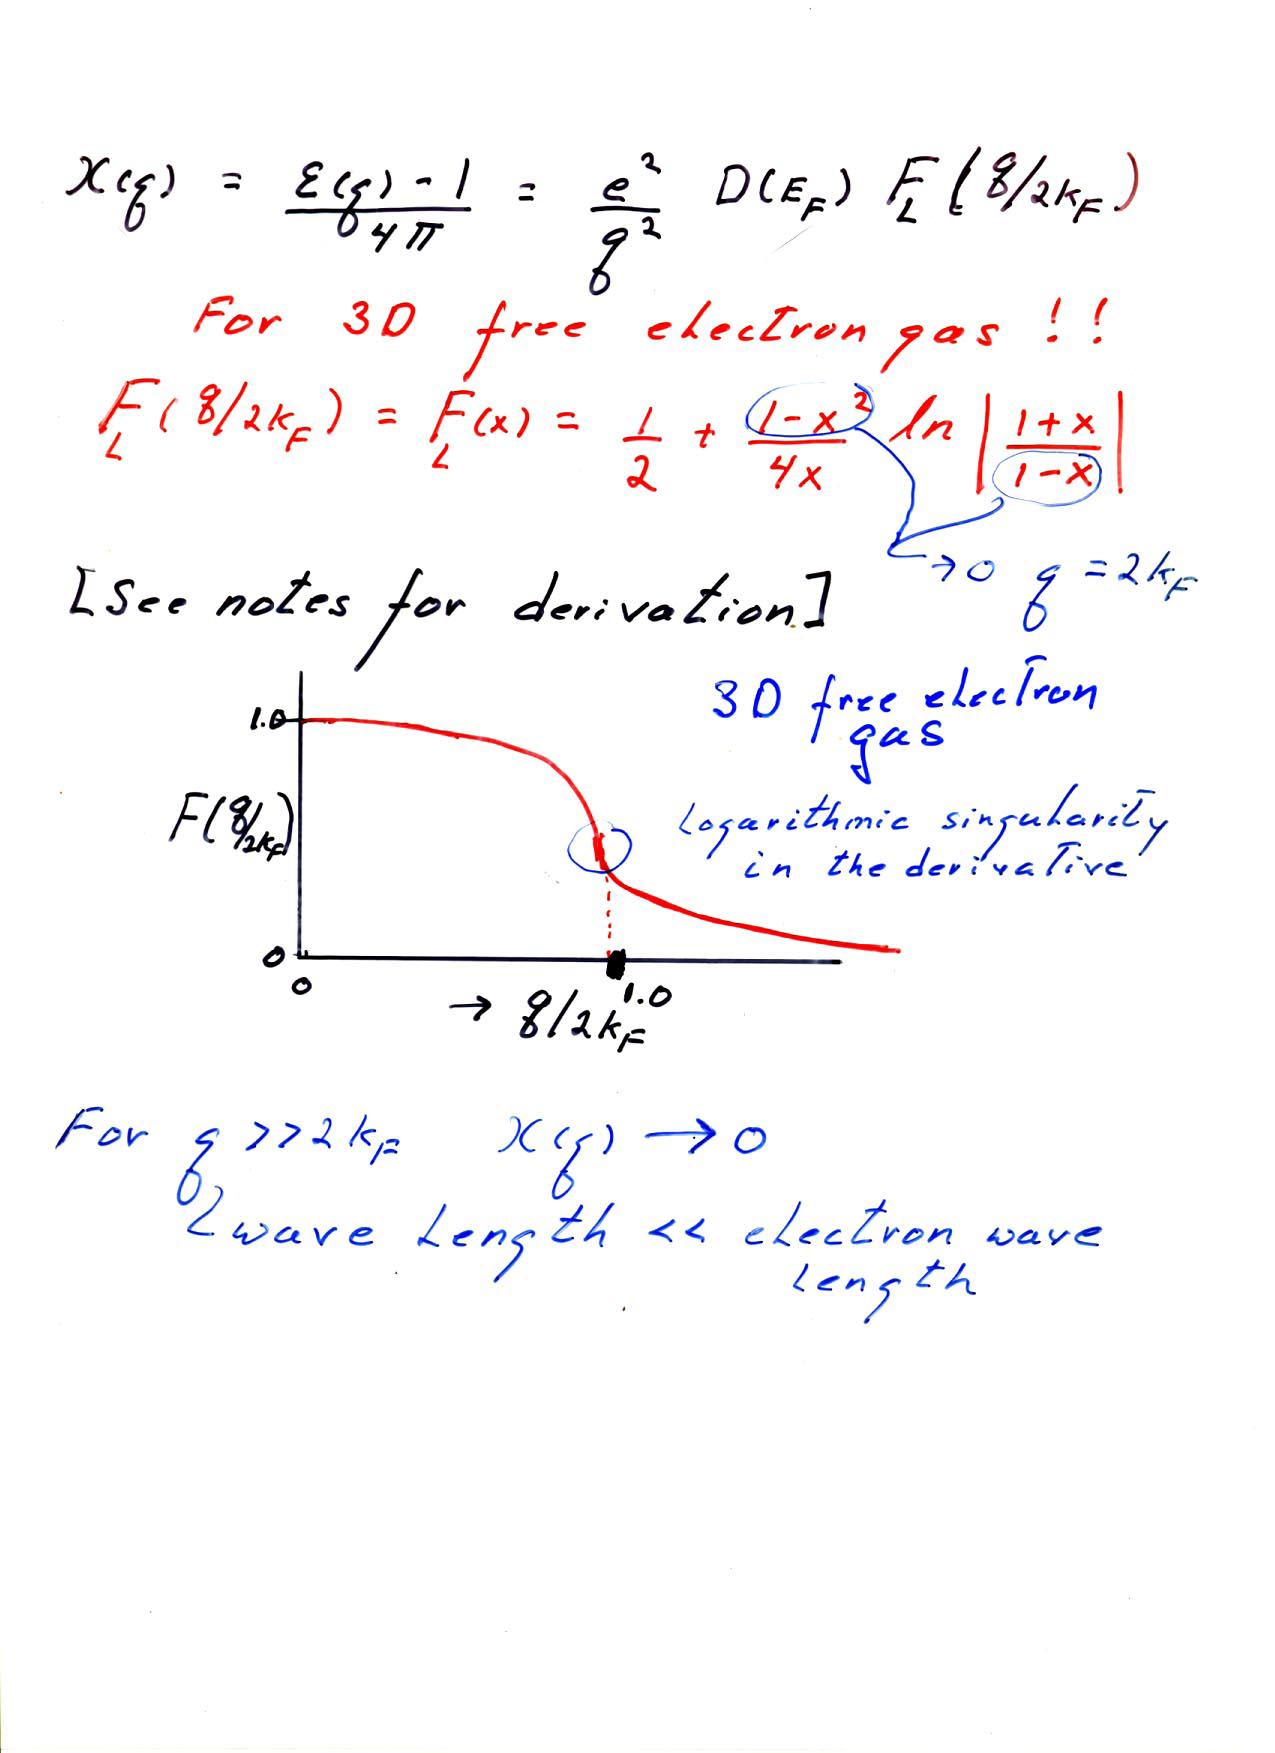 χ(q) = ε(q) - 1 / 4π = e² / q² D(E_F) F_L (q/2k_F)
For 3D free electron gas !!
F_L (q/2k_F) = F_L(x) = 1/2 + 1-x² / 4x ln | 1+x / 1-x |
→ 0 q = 2k_F
[See notes for derivation]
3D free electron
gas
1.0
F(q/2k_F)
Logarithmic singularity
in the derivative
0
0
1.0
→ q/2k_F
For q >> 2k_F χ(q) → 0
wave length << electron wave
length